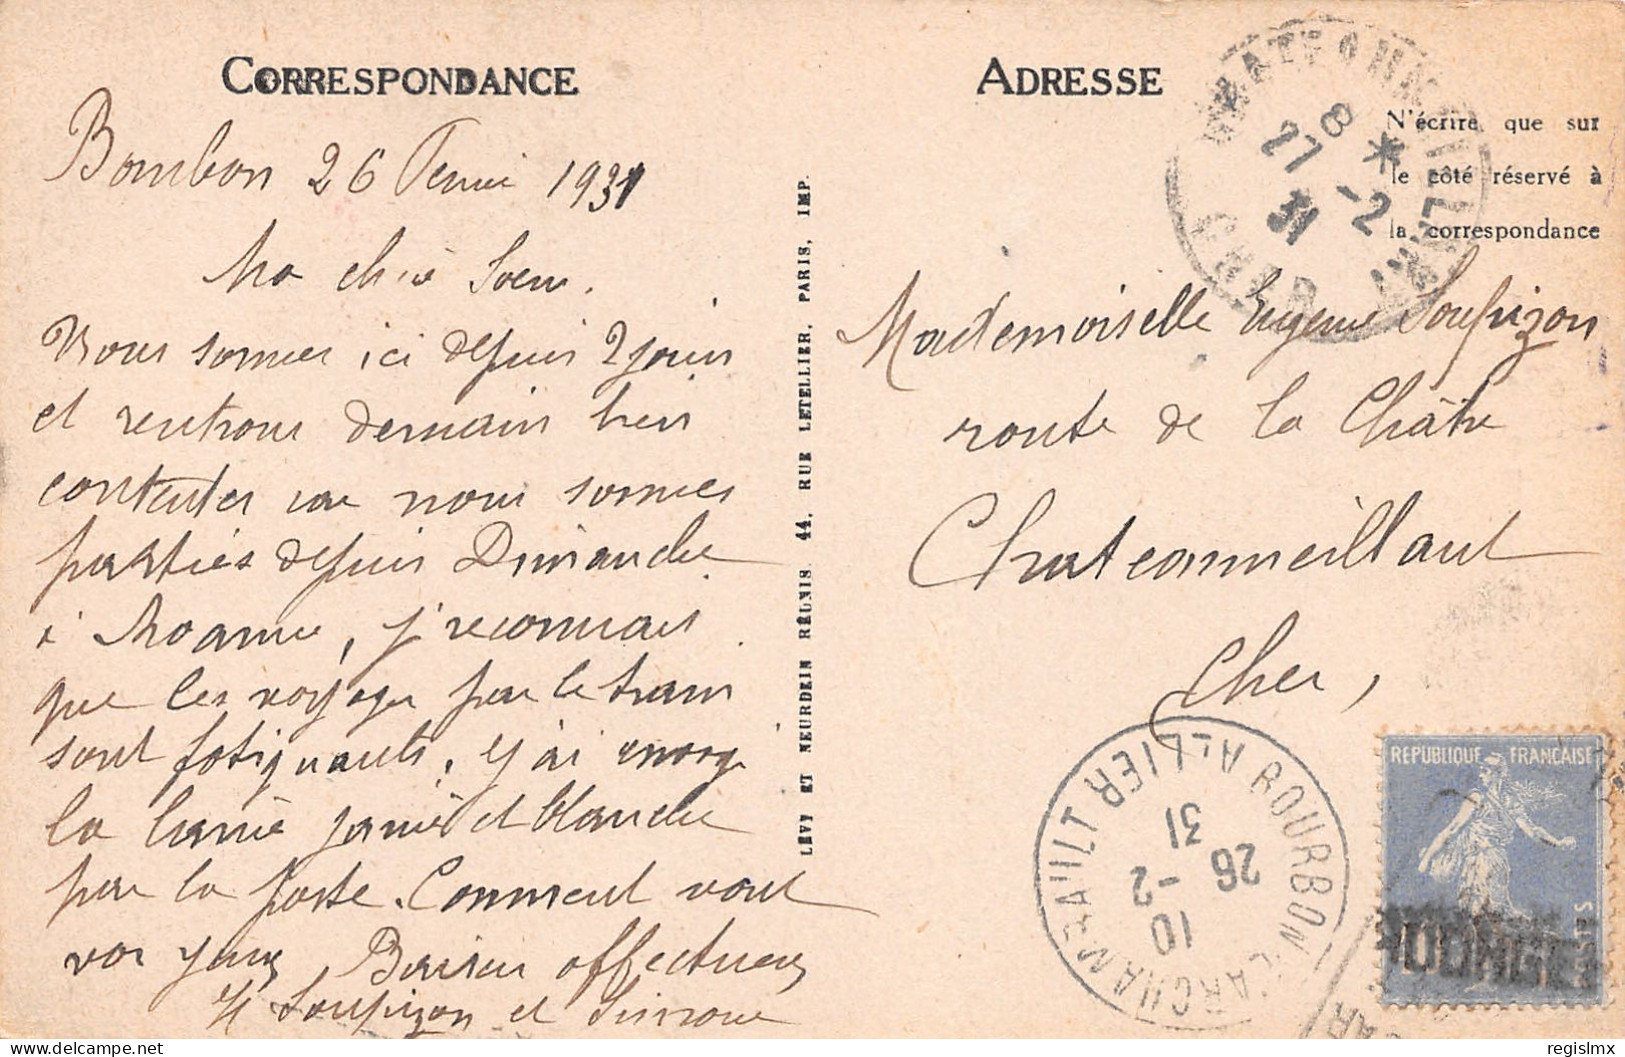 CORRESPONDANCE
Bourbon 26 Fevrie 1931
Ma chèr Soeur.
Nous sommes ici depuis 2 jours
et rentrons demain bien
contentes car nous sommes
parties depuis Dimanche
à Roanne, j'reconnais
que les voyages par le train
sont fatiguants. j'ai
la et blanche
par la poste. Comment vont
vos yeux Baisers affectueux
H Soupizon et
LÉVY ET NEURDEIN RÉUNIS 44, RUE LETELLIER, PARIS, IMP.
ADRESSE
N'écrire que sur
le côté réservé à
la correspondance
CHATEAUMEILLANT
8 *
27 -2
31
CHER
Mademoiselle Eugenie Soupizon
route de la Châtre
Chateaumeillant
Cher,
BOURBON L'ARCHAMBAULT ALLIER
10
26 -2
31
REPUBLIQUE FRANCAISE